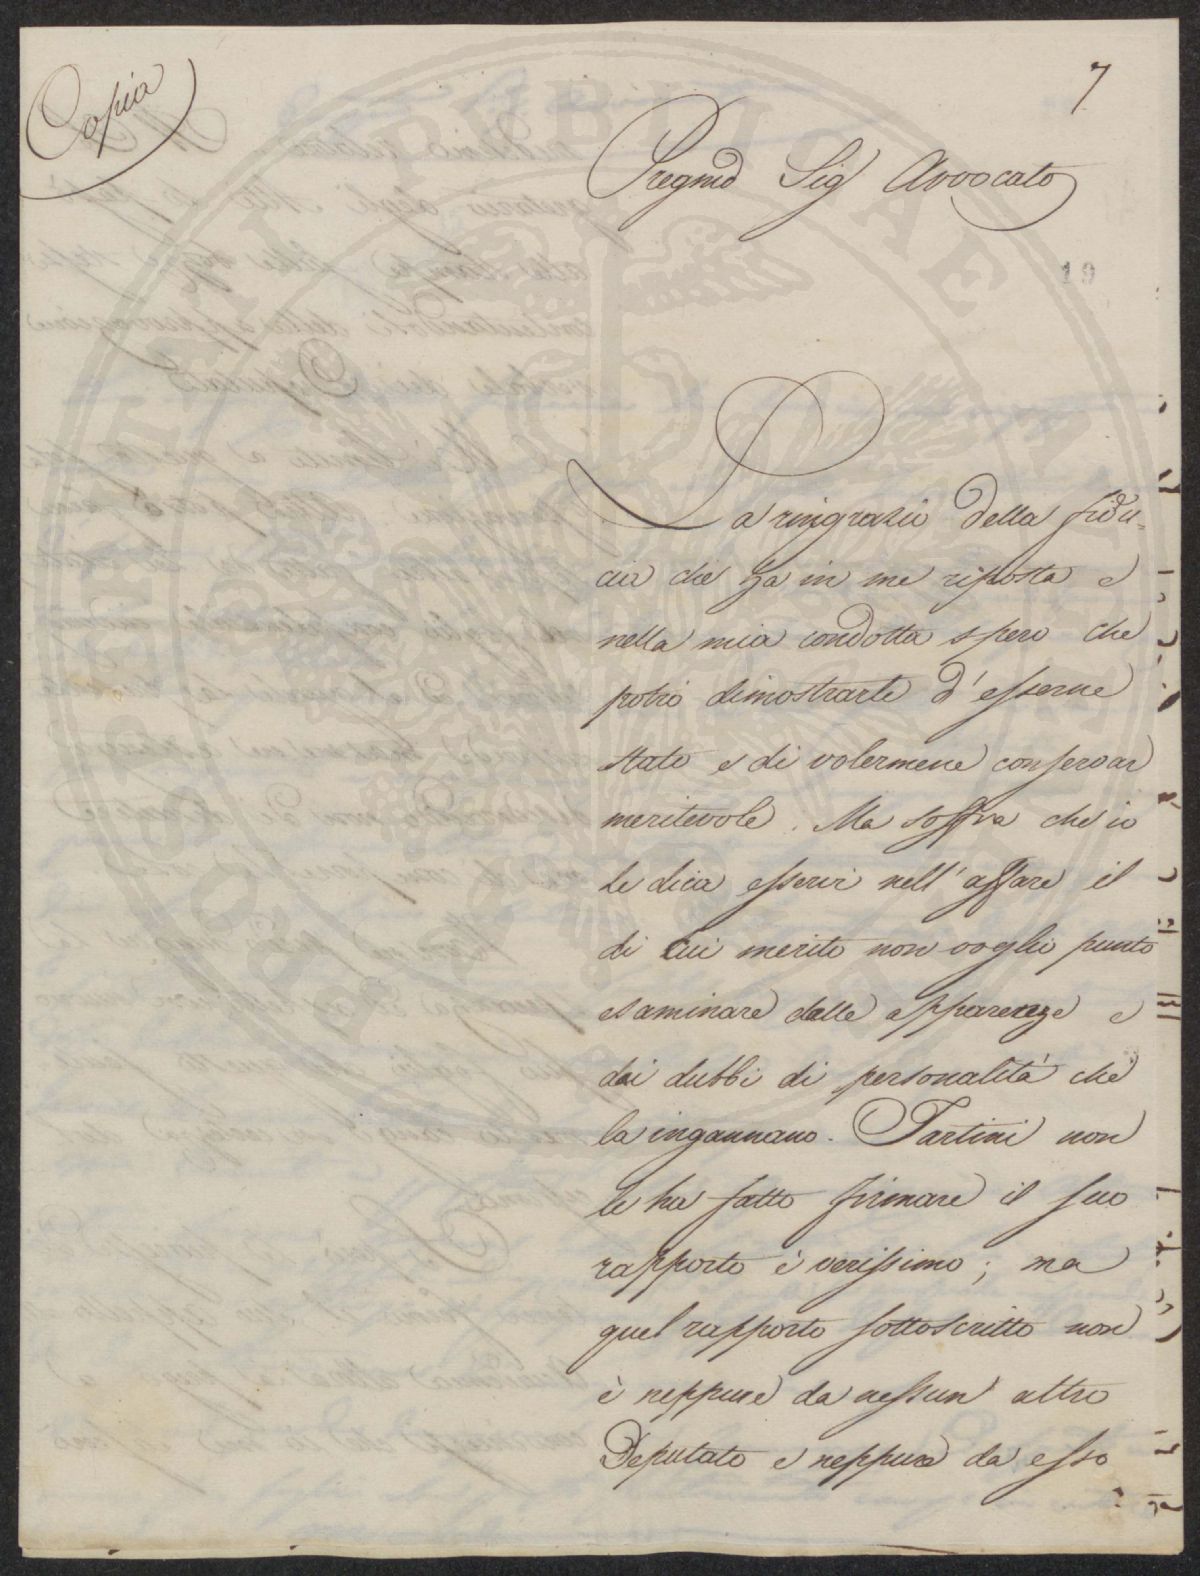 Copia
7
Pregmo Sig Avvocato
19
La ringrazio della fidu=
cia che ha in me riposta e
nella mia condotta spero che
potrò dimostrarle d'esserne
stato e di volermene conservar
meritevole. Ma soffra che io
le dica esservi nell'affare il
di cui merito non voglio punto
esaminare delle apparenze e
dei dubbi di personalità che
la ingannano. Tartini non
le ha fatto firmare il suo
rapporto è verissimo; ma
quel rapporto sottoscritto non
è neppure da nessun altro
Deputato e neppure da esso